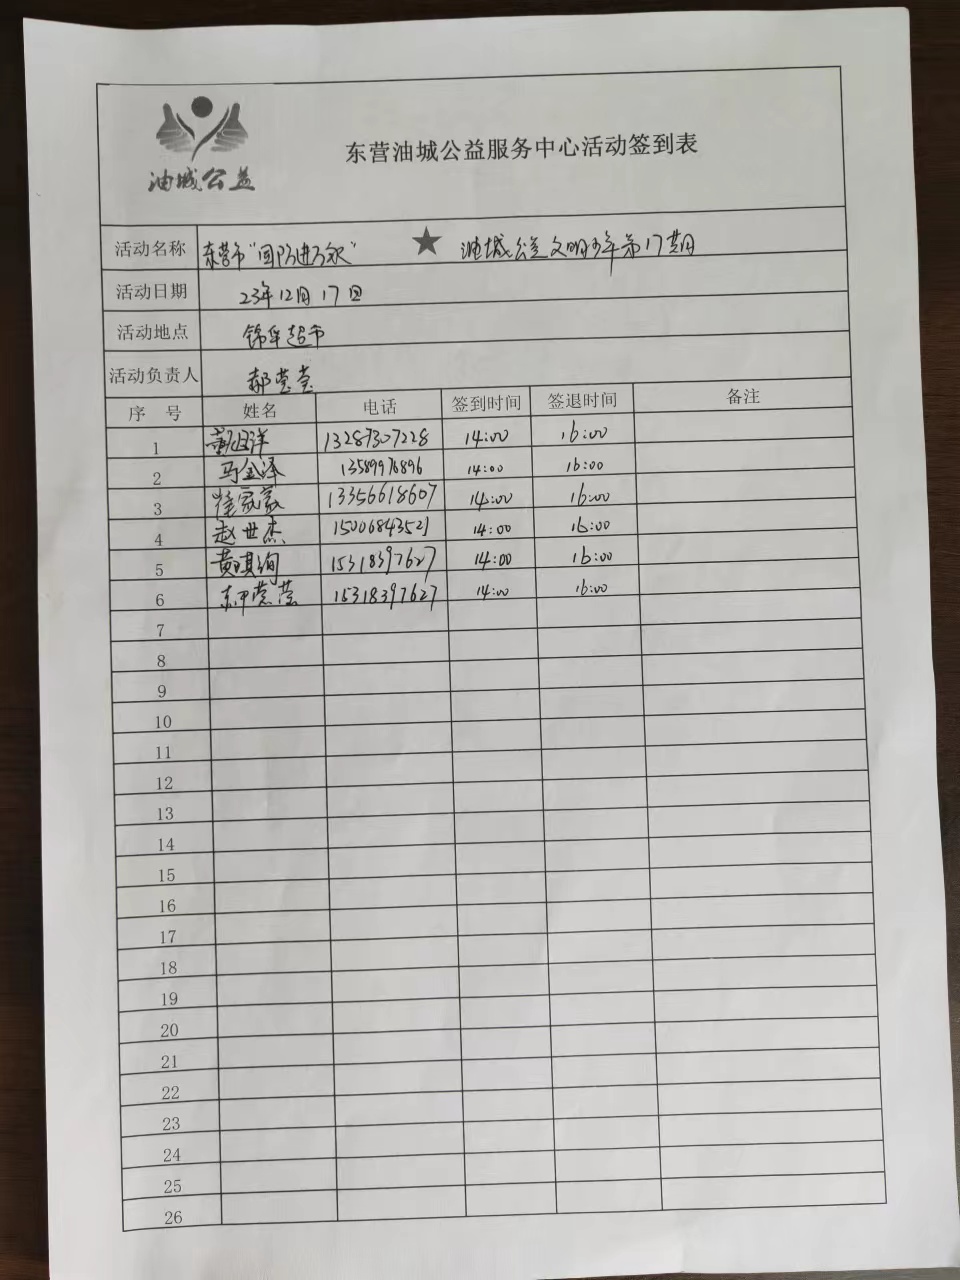 油城公益
东营油城公益服务中心活动签到表
活动名称 东营市"国防进万家" ★ 油城公益文明少年第17期
活动日期 23年12月17日
活动地点 锦华超市
活动负责人 郝莹莹
序 号 姓名 电话 签到时间 签退时间 备注
1 13287307228 14:00 16:00
2 马金泽 13589976896 14:00 16:00
3 13356618607 14:00 16:00
4 赵世杰 15006843521 14:00 16:00
5 黄琪绚 15318397627 14:00 16:00
6 15318397627 14:00 16:00
7
8
9
10
11
12
13
14
15
16
17
18
19
20
21
22
23
24
25
26